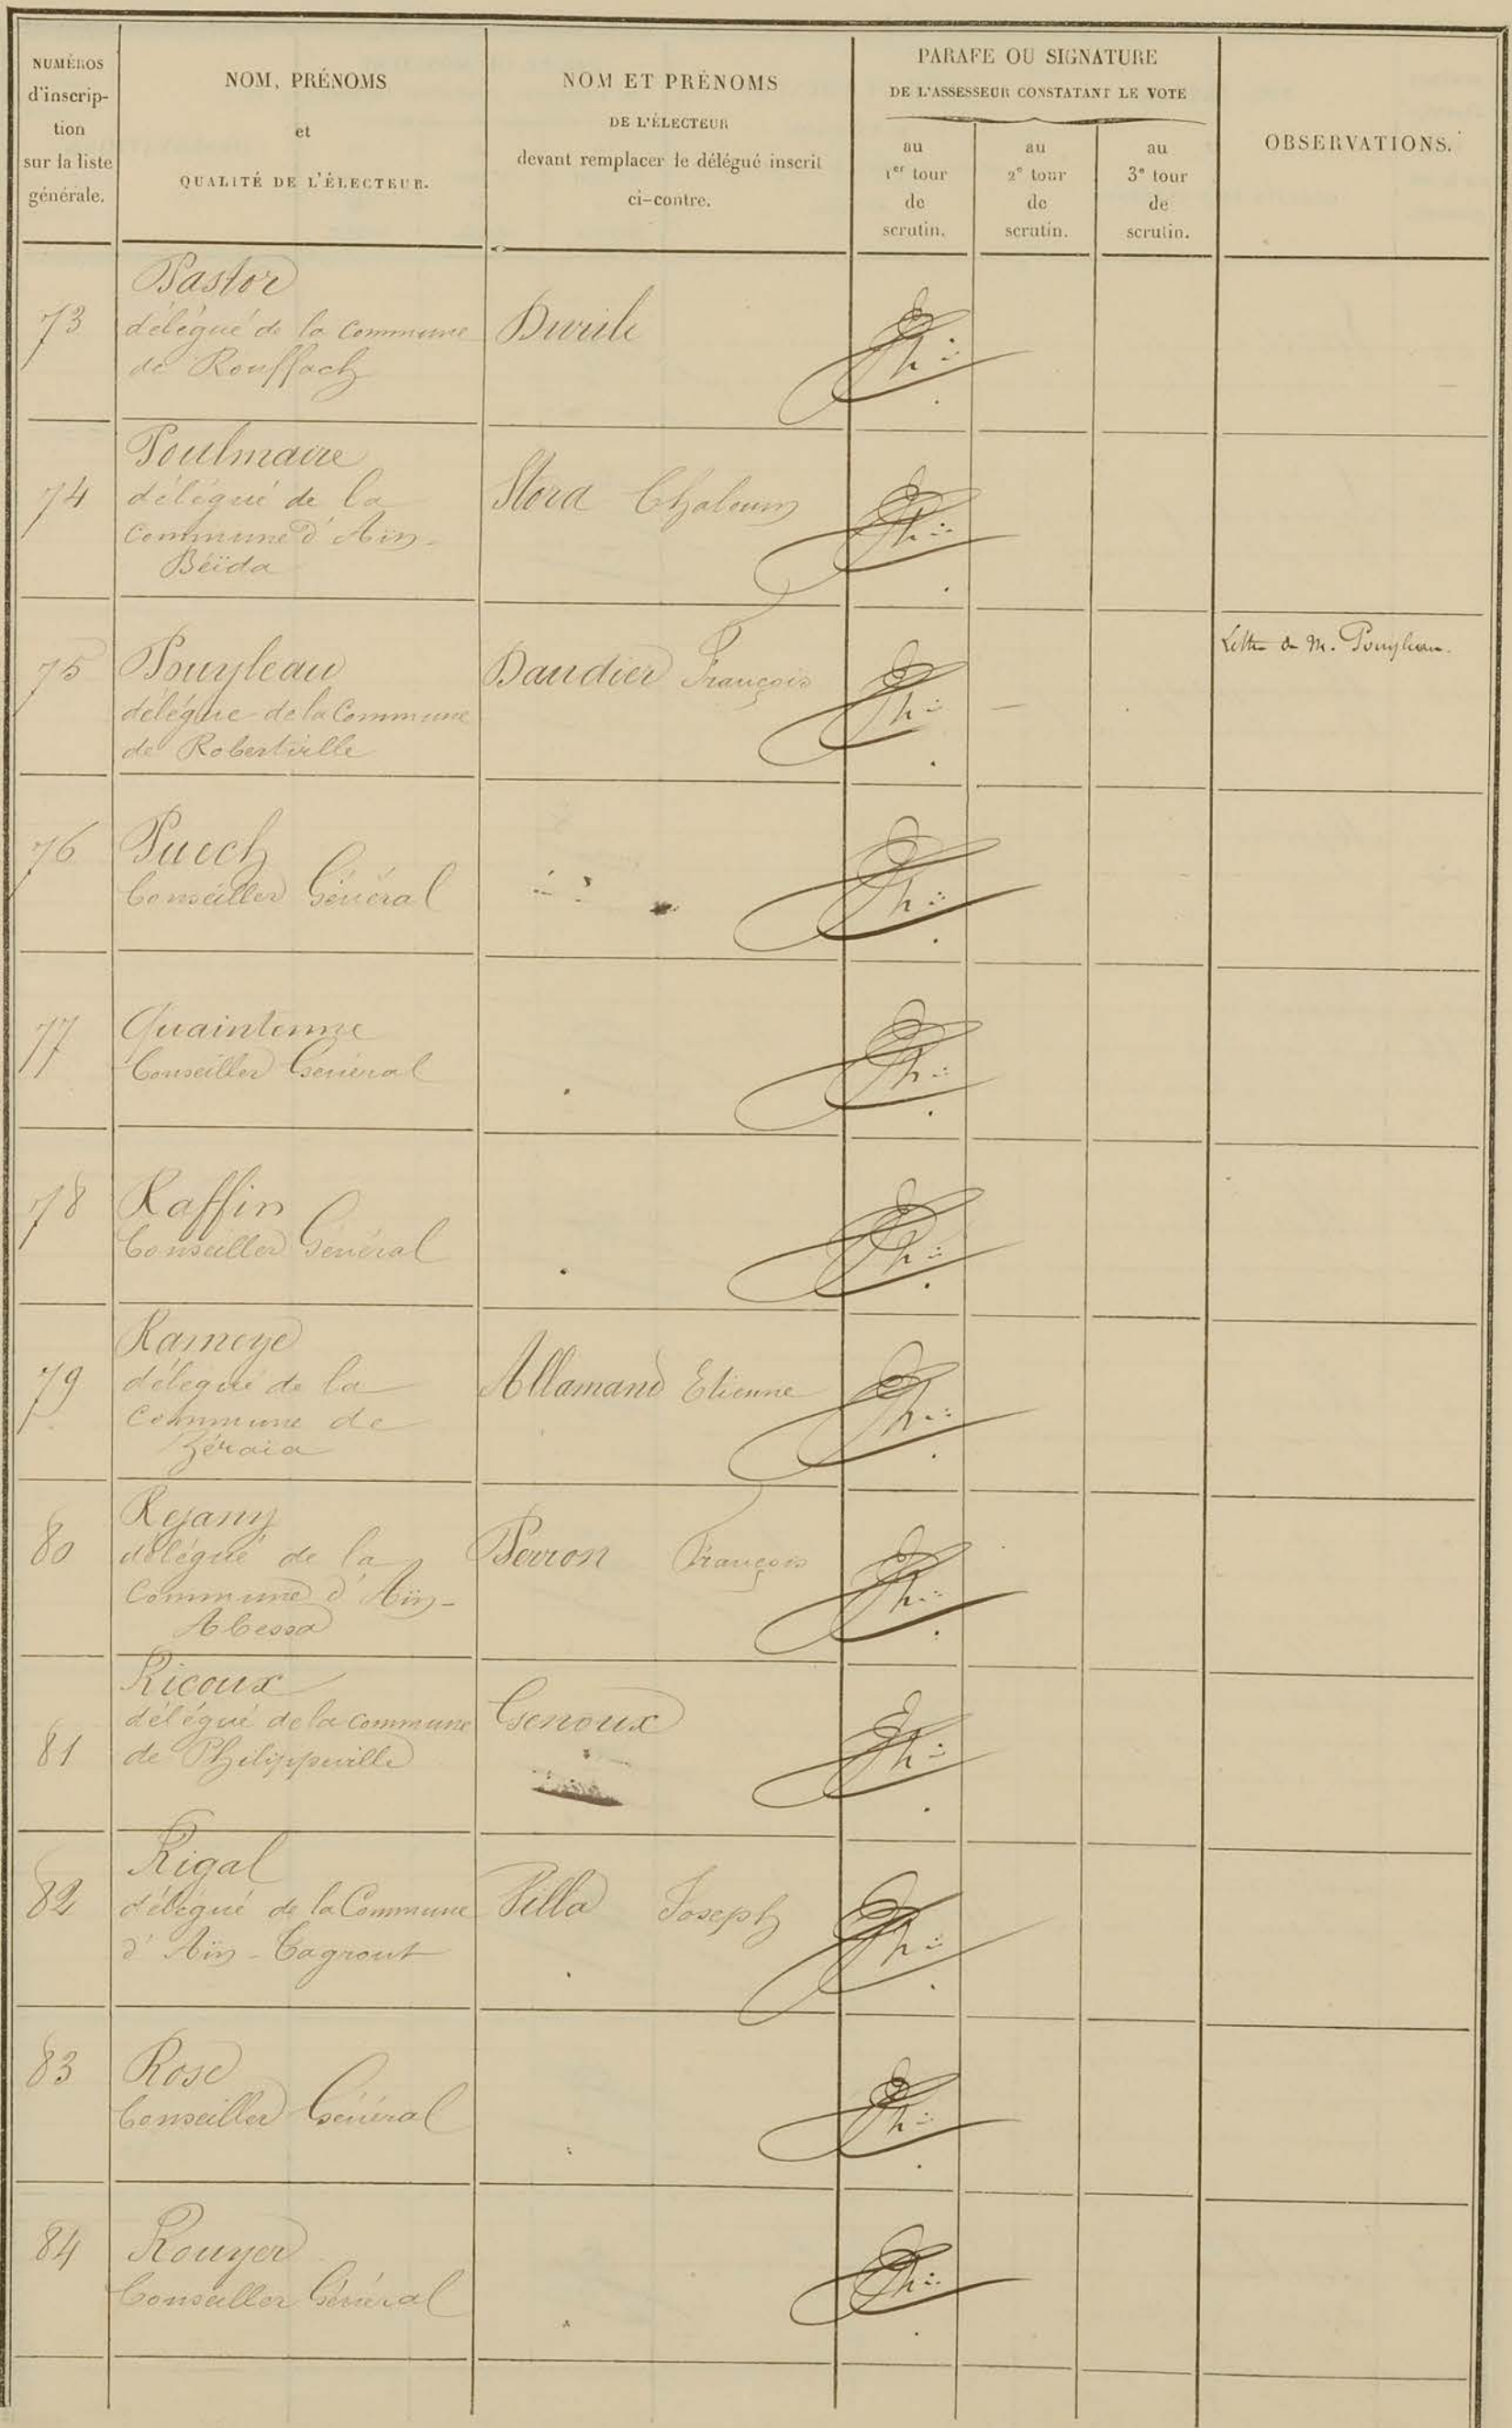 NUMÉROS
d'inscrip-
tion
sur la liste
générale.
NOM, PRÉNOMS
et
QUALITÉ DE L'ÉLECTEUR.
NOM ET PRÉNOMS
DE L'ÉLECTEUR
devant remplacer le délégué inscrit
ci-contre.
PARAFE OU SIGNATURE
DE L'ASSESSEUR CONSTATANT LE VOTE
au
1er tour
de
scrutin.
au
2e tour
de
scrutin.
au
3e tour
de
scrutin.
OBSERVATIONS.
73
Pastor
délégué de la commune
de Rouffach
74
Poulmaire
délégué de la
commune d'Aïn-
Béïda
Stora Chaloum
75
Pouyleau
délégué de la Commune
de Robertville
Daudier François
Lettre de M. Pouyleau.
76
Puech
Conseiller Général
77
Quaintenne
Conseiller Général
78
Raffin
Conseiller Général
79
Rameye
délégué de la
commune de
Zéraia
Allamand Etienne
80
Rejany
délégué de la
Commune d'Aïn-
Abessa
Perron François
81
Ricoux
délégué de la commune
de Philippeville
Genoux
82
Rigal
délégué de la Commune
d'Aïn-Tagrout
Villa Joseph
83
Rose
Conseiller Général
84
Rouyer
Conseiller Général